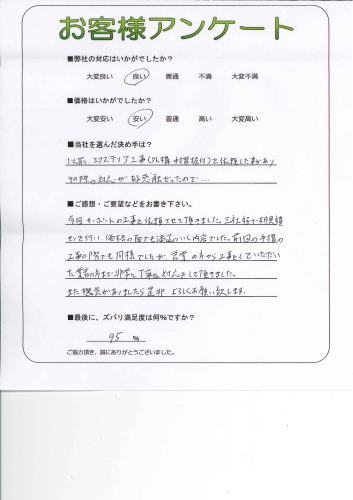 お客様アンケート
■弊社の対応はいかがでしたか？
大変良い 良い 普通 不満 大変不満
■価格はいかがでしたか？
大変安い 安い 普通 高い 大変高い
■当社を選んだ決め手は？
以前、エクステリア工事を依頼した事があり
その際の対応が好感触だったので…
■ご感想・ご要望などをお書き下さい。
今回カーポートの工事を依頼させて頂きました。三社程で相見積
もりで行い価格の面でも満足のいく内容でした。前回の手摺の
工事の時でも同様でしたが、営業の方から工事をしていただい
た業者の方まで非常に丁寧な対応をして頂きました。
また機会がありましたら是非、よろしくお願い致します。
■最後に、ズバリ満足度は何％ですか？
95 %
ご協力頂き、誠にありがとうございました。